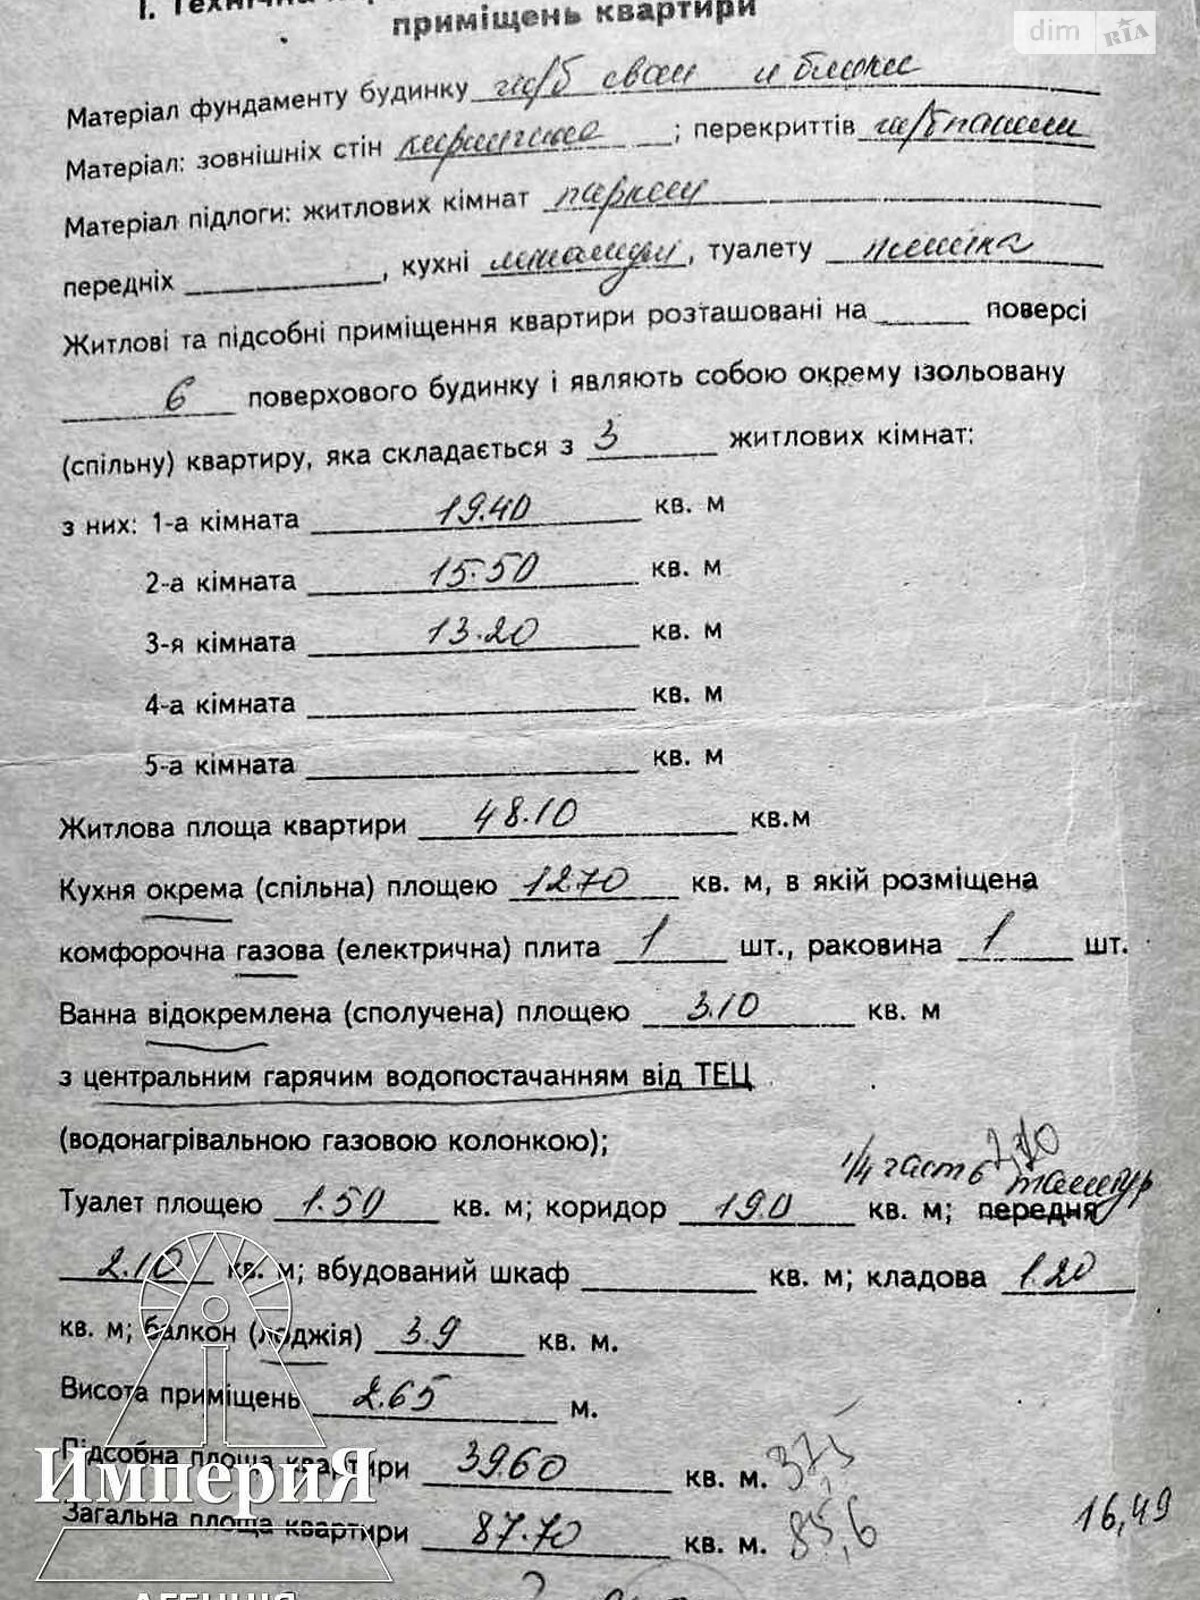 dim RIA
І. Технічна
приміщень квартири
Матеріал фундаменту будинку ж/б сваи и блоки
Матеріал: зовнішніх стін кирпично ; перекриттів ж/б панели
Матеріал підлоги: житлових кімнат паркет
передніх , кухні линолеум, туалету плитка
Житлові та підсобні приміщення квартири розташовані на поверсі
6 поверхового будинку і являють собою окрему ізольовану
(спільну) квартиру, яка складається з 3 житлових кімнат:
з них: 1-а кімната 19.40 кв. м
2-а кімната 15.50 кв. м
3-я кімната 13.20 кв. м
4-а кімната кв. м
5-а кімната кв. м
Житлова площа квартири 48.10 кв.м
Кухня окрема (спільна) площею 12.70 кв. м, в якій розміщена
комфорочна газова (електрична) плита 1 шт., раковина 1 шт.
Ванна відокремлена (сполучена) площею 3.10 кв. м
з центральним гарячим водопостачанням від ТЕЦ
(водонагрівальною газовою колонкою);
1/4 часть тамбур
Туалет площею 1.50 кв. м; коридор 19.0 кв. м; передня
2.10 кв. м; вбудований шкаф кв. м; кладова 1.20
кв. м; балкон (лоджія) 3.9 кв. м.
Висота приміщень 2.65 м.
Підсобна площа квартири 39.60 кв. м. 37,5
ИмпериЯ
Загальна площа квартири 87.70 кв. м. 85,6
16,49
АГЕНЦІЯ